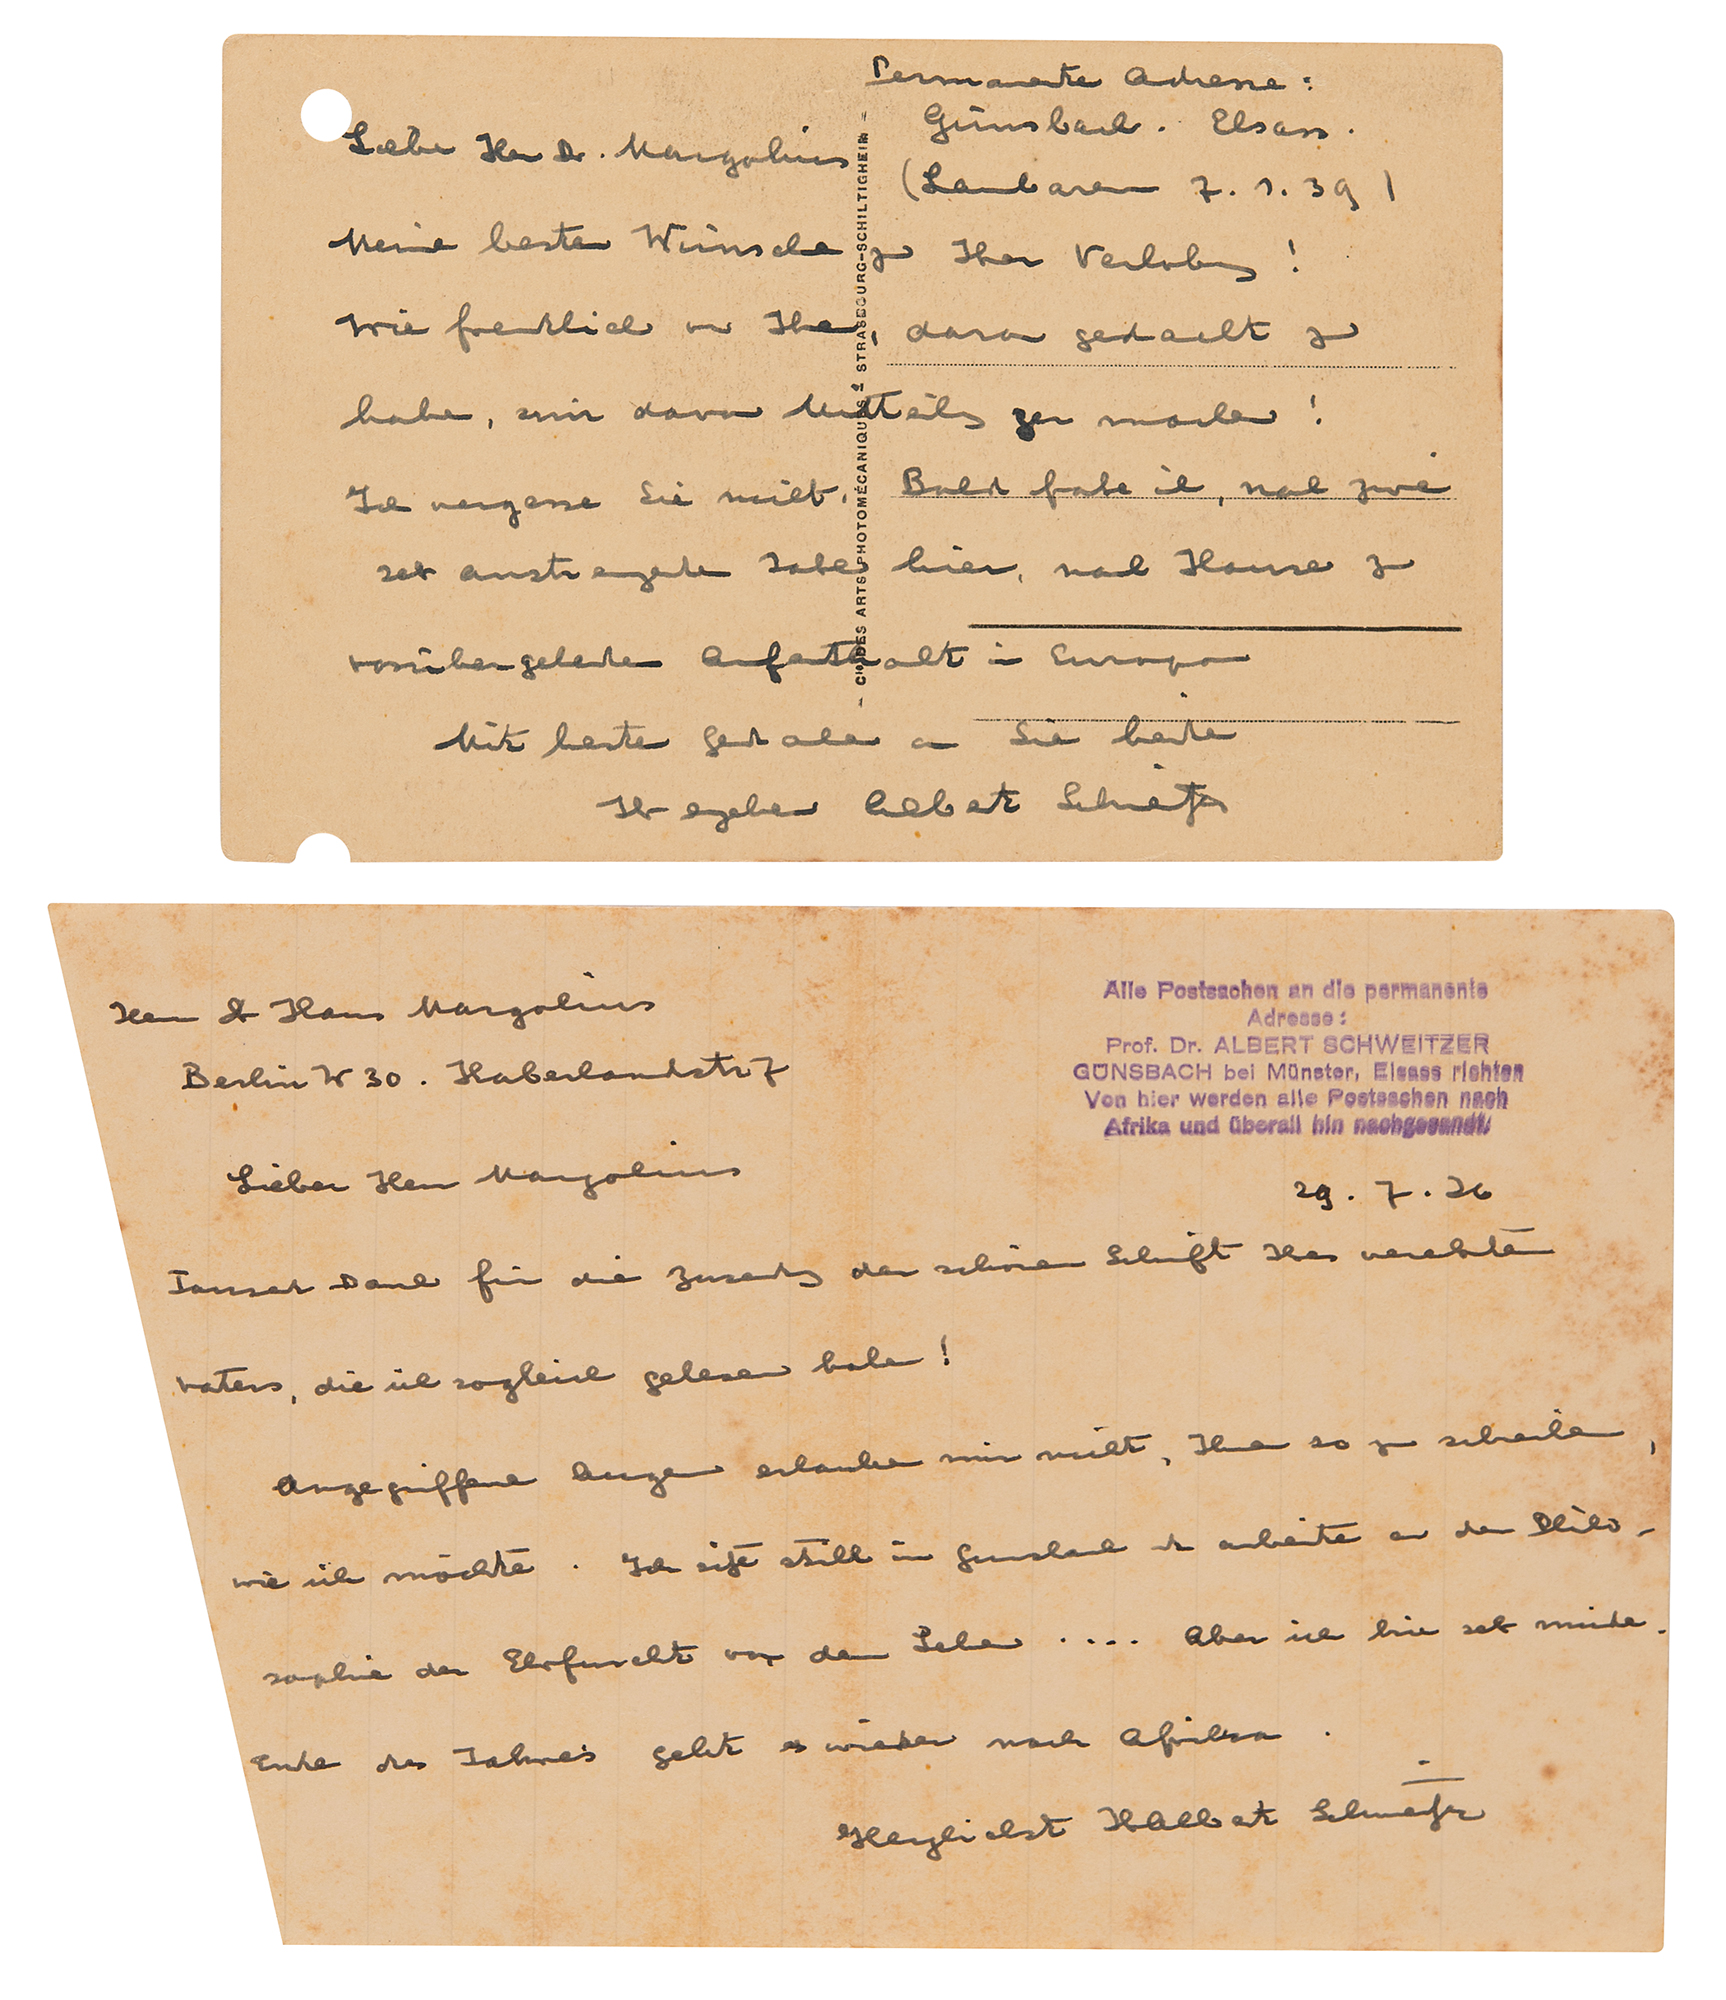 Permanente Adresse:
Günsbach. Elsass.
(Lambarene 7.1.39)
Lieber Herr Dr. Margolius
Meine besten Wünsche zu Ihrer Verlobung!
Wie freundlich von Ihnen, daran gedacht zu
haben, mir davon Mitteilung zu machen!
Ich vergesse Sie nicht. Bald fahre ich, nach zwei
sehr anstrengenden Jahren hier, nach Hause zu
vorübergehenden Aufenthalt in Europa
Mit besten Gedanken an Sie beide
Ihr ergebener Albert Schweitzer
CIE DES ARTS PHOTOMÉCANIQUES STRASBOURG-SCHILTIGHEIM
Alle Postsachen an die permanente
Adresse:
Prof. Dr. ALBERT SCHWEITZER
GÜNSBACH bei Münster, Elsass richten
Von hier werden alle Postsachen nach
Afrika und überall hin nachgesandt.
Herrn Dr Hans Margolius
Berlin W 30. Haberlandstr 7
29.7.36
Lieber Herr Margolius
Tausend Dank für die Zusendung der schönen Schrift Ihres verehrten
Vaters, die ich sogleich gelesen habe!
Angegriffene Augen erlauben mir nicht, Ihnen so zu schreiben,
wie ich möchte. Ich sitze still in Günsbach und arbeite an der Philo-
sophie der Ehrfurcht vor dem Leben .... Aber ich bin sehr müde.
Ende des Jahres geht es wieder nach Afrika.
Herzlichst Ihr Albert Schweitzer